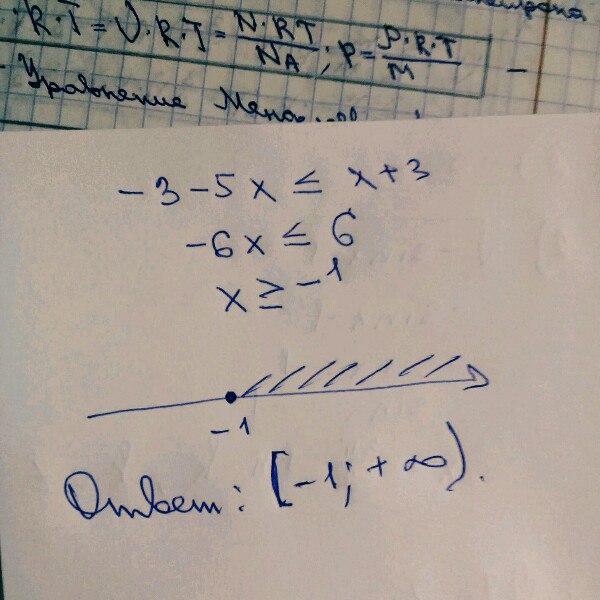 R·T = ν·R·T = N·R·T/N_A ; p = ρ·R·T/M
Уравнение
-3-5x ≤ x+3
-6x ≤ 6
x ≥ -1
-1
Ответ: [-1; +∞).